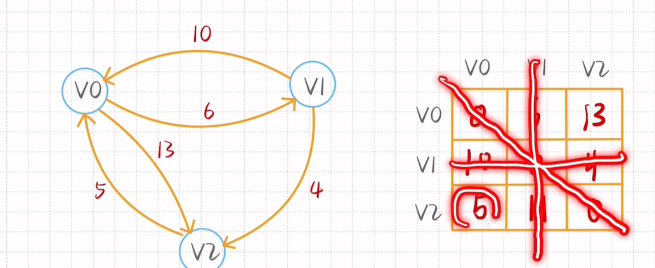 10
V0
V1
6
13
5
4
V2
V0 V2
V0 13
V1 10 4
V2 5